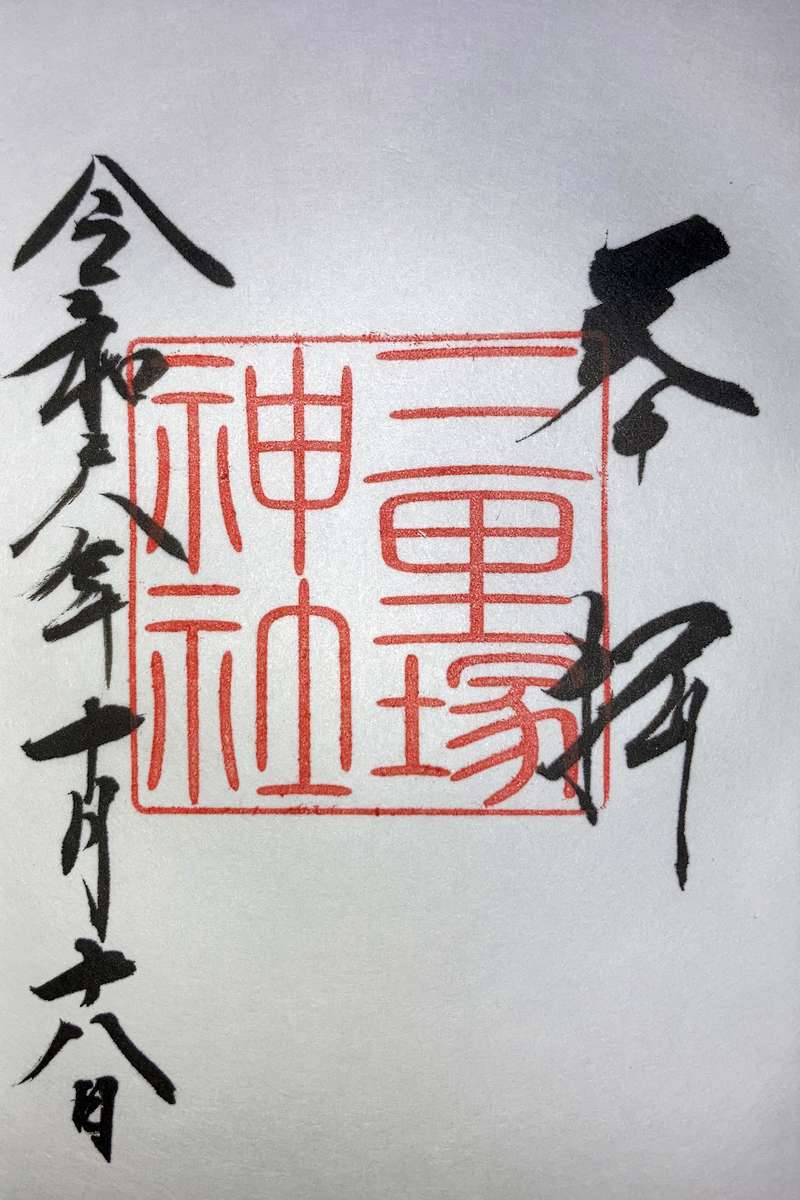 奉拝
三里塚
神社
令和六年十月十八日